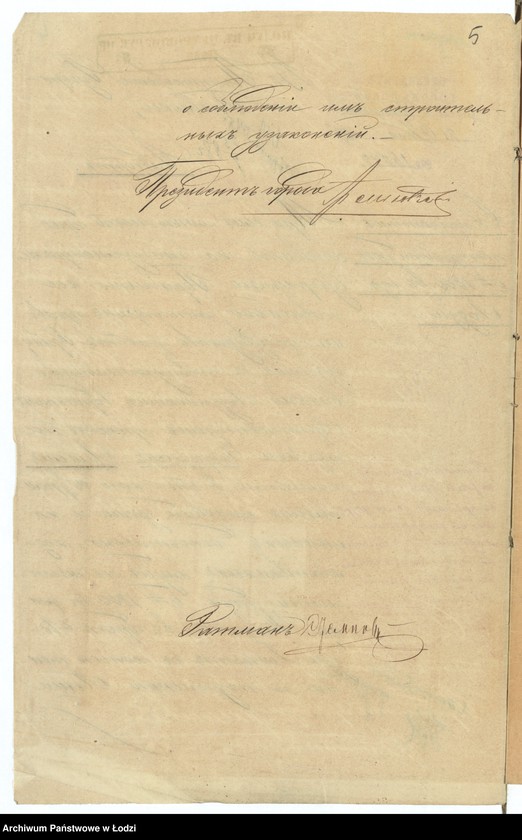 5
о соблюденіи имъ строитель-
ныхъ узаконеній.—
Президентъ города
Ратманъ
Archiwum Państwowe w Łodzi